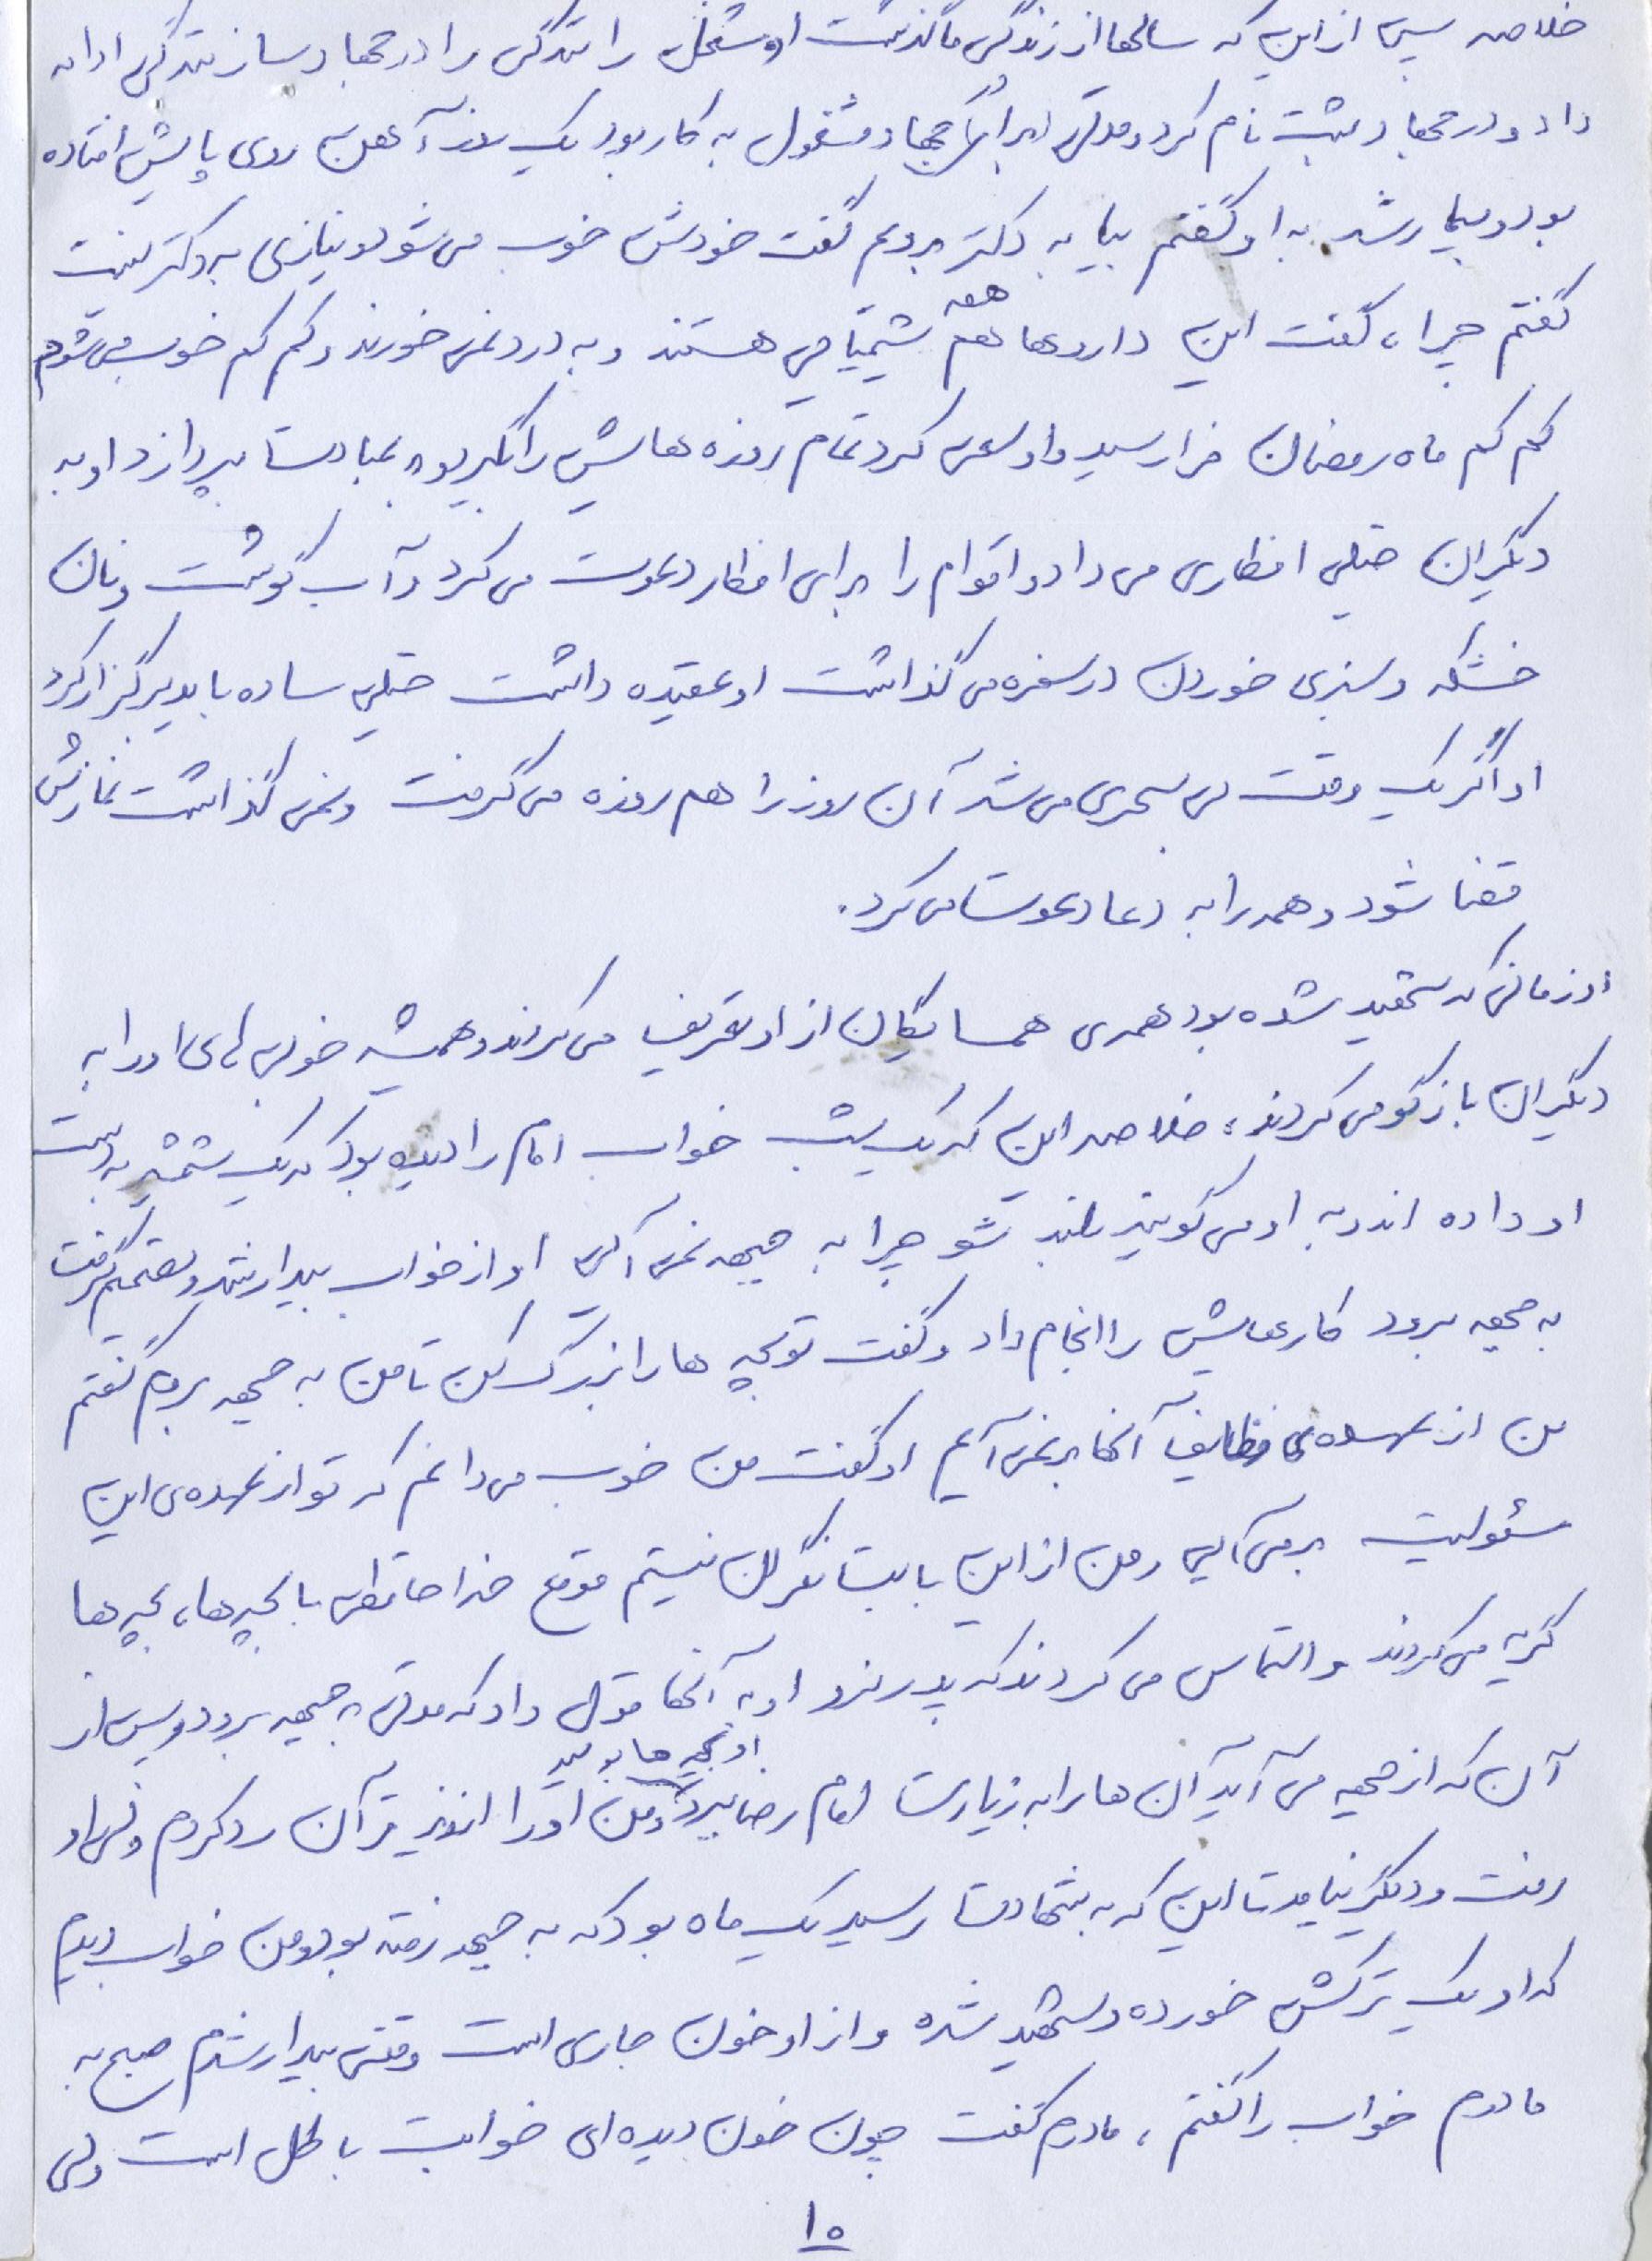 خلاصه پس از این که سالها از زندگی ما گذشت او شغل رانندگی را در جهاد سازندگی ادامه
داد و در جهاد ثبت نام کرد و مدتی را برای جهاد مشغول به کار بود یک روز آهن روی پایش افتاده
بود و بیمار شد. به او گفتم بیا به دکتر برویم گفت خودش خوب می شود و نیازی به دکتر نیست
گفتم چرا، گفت این داروها همه شیمیایی هستند و به درد نمی خورند و کم کم خوب می شوم
کم کم ماه رمضان فرا رسید و او سعی کرد تمام روزه هایش را بگیرد و به عبادت بپردازد او به
دیگران خیلی افطاری می داد و اقوام را برای افطار دعوت می کرد و آب گوشت و نان
خشکه و سبزی خوردن در سفره می گذاشت او عقیده داشت خیلی ساده باید برگزار کرد
او اگر یک وقت بی سحری می شد آن روز را هم روزه می گرفت و نمی گذاشت نمازش
قضا شود و همه را به دعا دعوت می کرد.
از زمانی که شهید شده بود همه ی همسایگان از او تعریف می کردند و همیشه خوبی های او را به
دیگران بازگو می کردند، خلاصه این که یک شب خواب امام را دیده بود که یک شمشیر به دست
او داده اند و به او می گویند بلند شو چرا به جبهه نمی آیی او از خواب بیدار شد و تصمیم گرفت
به جبهه برود کارهایش را انجام داد و گفت تو بچه ها را بزرگ کن تا من به جبهه بروم گفتم
من از عهده ی وظایف آنها بر نمی آیم او گفت من خوب می دانم که تو از عهده ی این
مسئولیت بر می آیی و من از این بابت نگران نیستم موقع خداحافظی با بچه ها، بچه ها
گریه می کردند و التماس می کردند که پدر نرو او به آنها قول داد که مدتی به جبهه برود و پس از
آن که از جبهه می آید آن ها را به زیارت امام رضا ببرد او بچه ها بوسید و من او را از زیر قرآن رد کردم ولی او
رفت و دیگر نیامد تا این که به شهادت رسید یک ماه بود که به جبهه رفته بود و من خواب دیدم
که او یک ترکش خورده و شهید شده و از او خون جاری است وقتی بیدار شدم صبح به
مادرم خواب را گفتم، مادرم گفت چون خون دیده ای خوابت باطل است ولی
۱۰